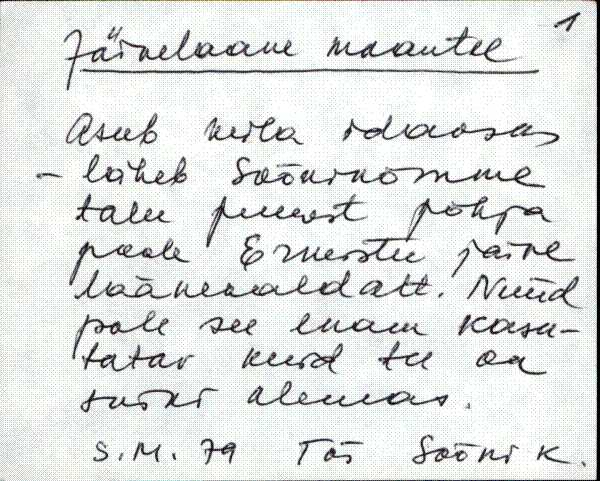 1
Järvelaane maantee
Asub küla idaosas
– läheb Sõõninõmme
talu juurest põhja
poole Ermistu järve
läänekaldalt. Nüüd
pole see enam kasu-
tatav kuid tee on
siiski olemas.
S.M. 79 Tõs Sõõni k.